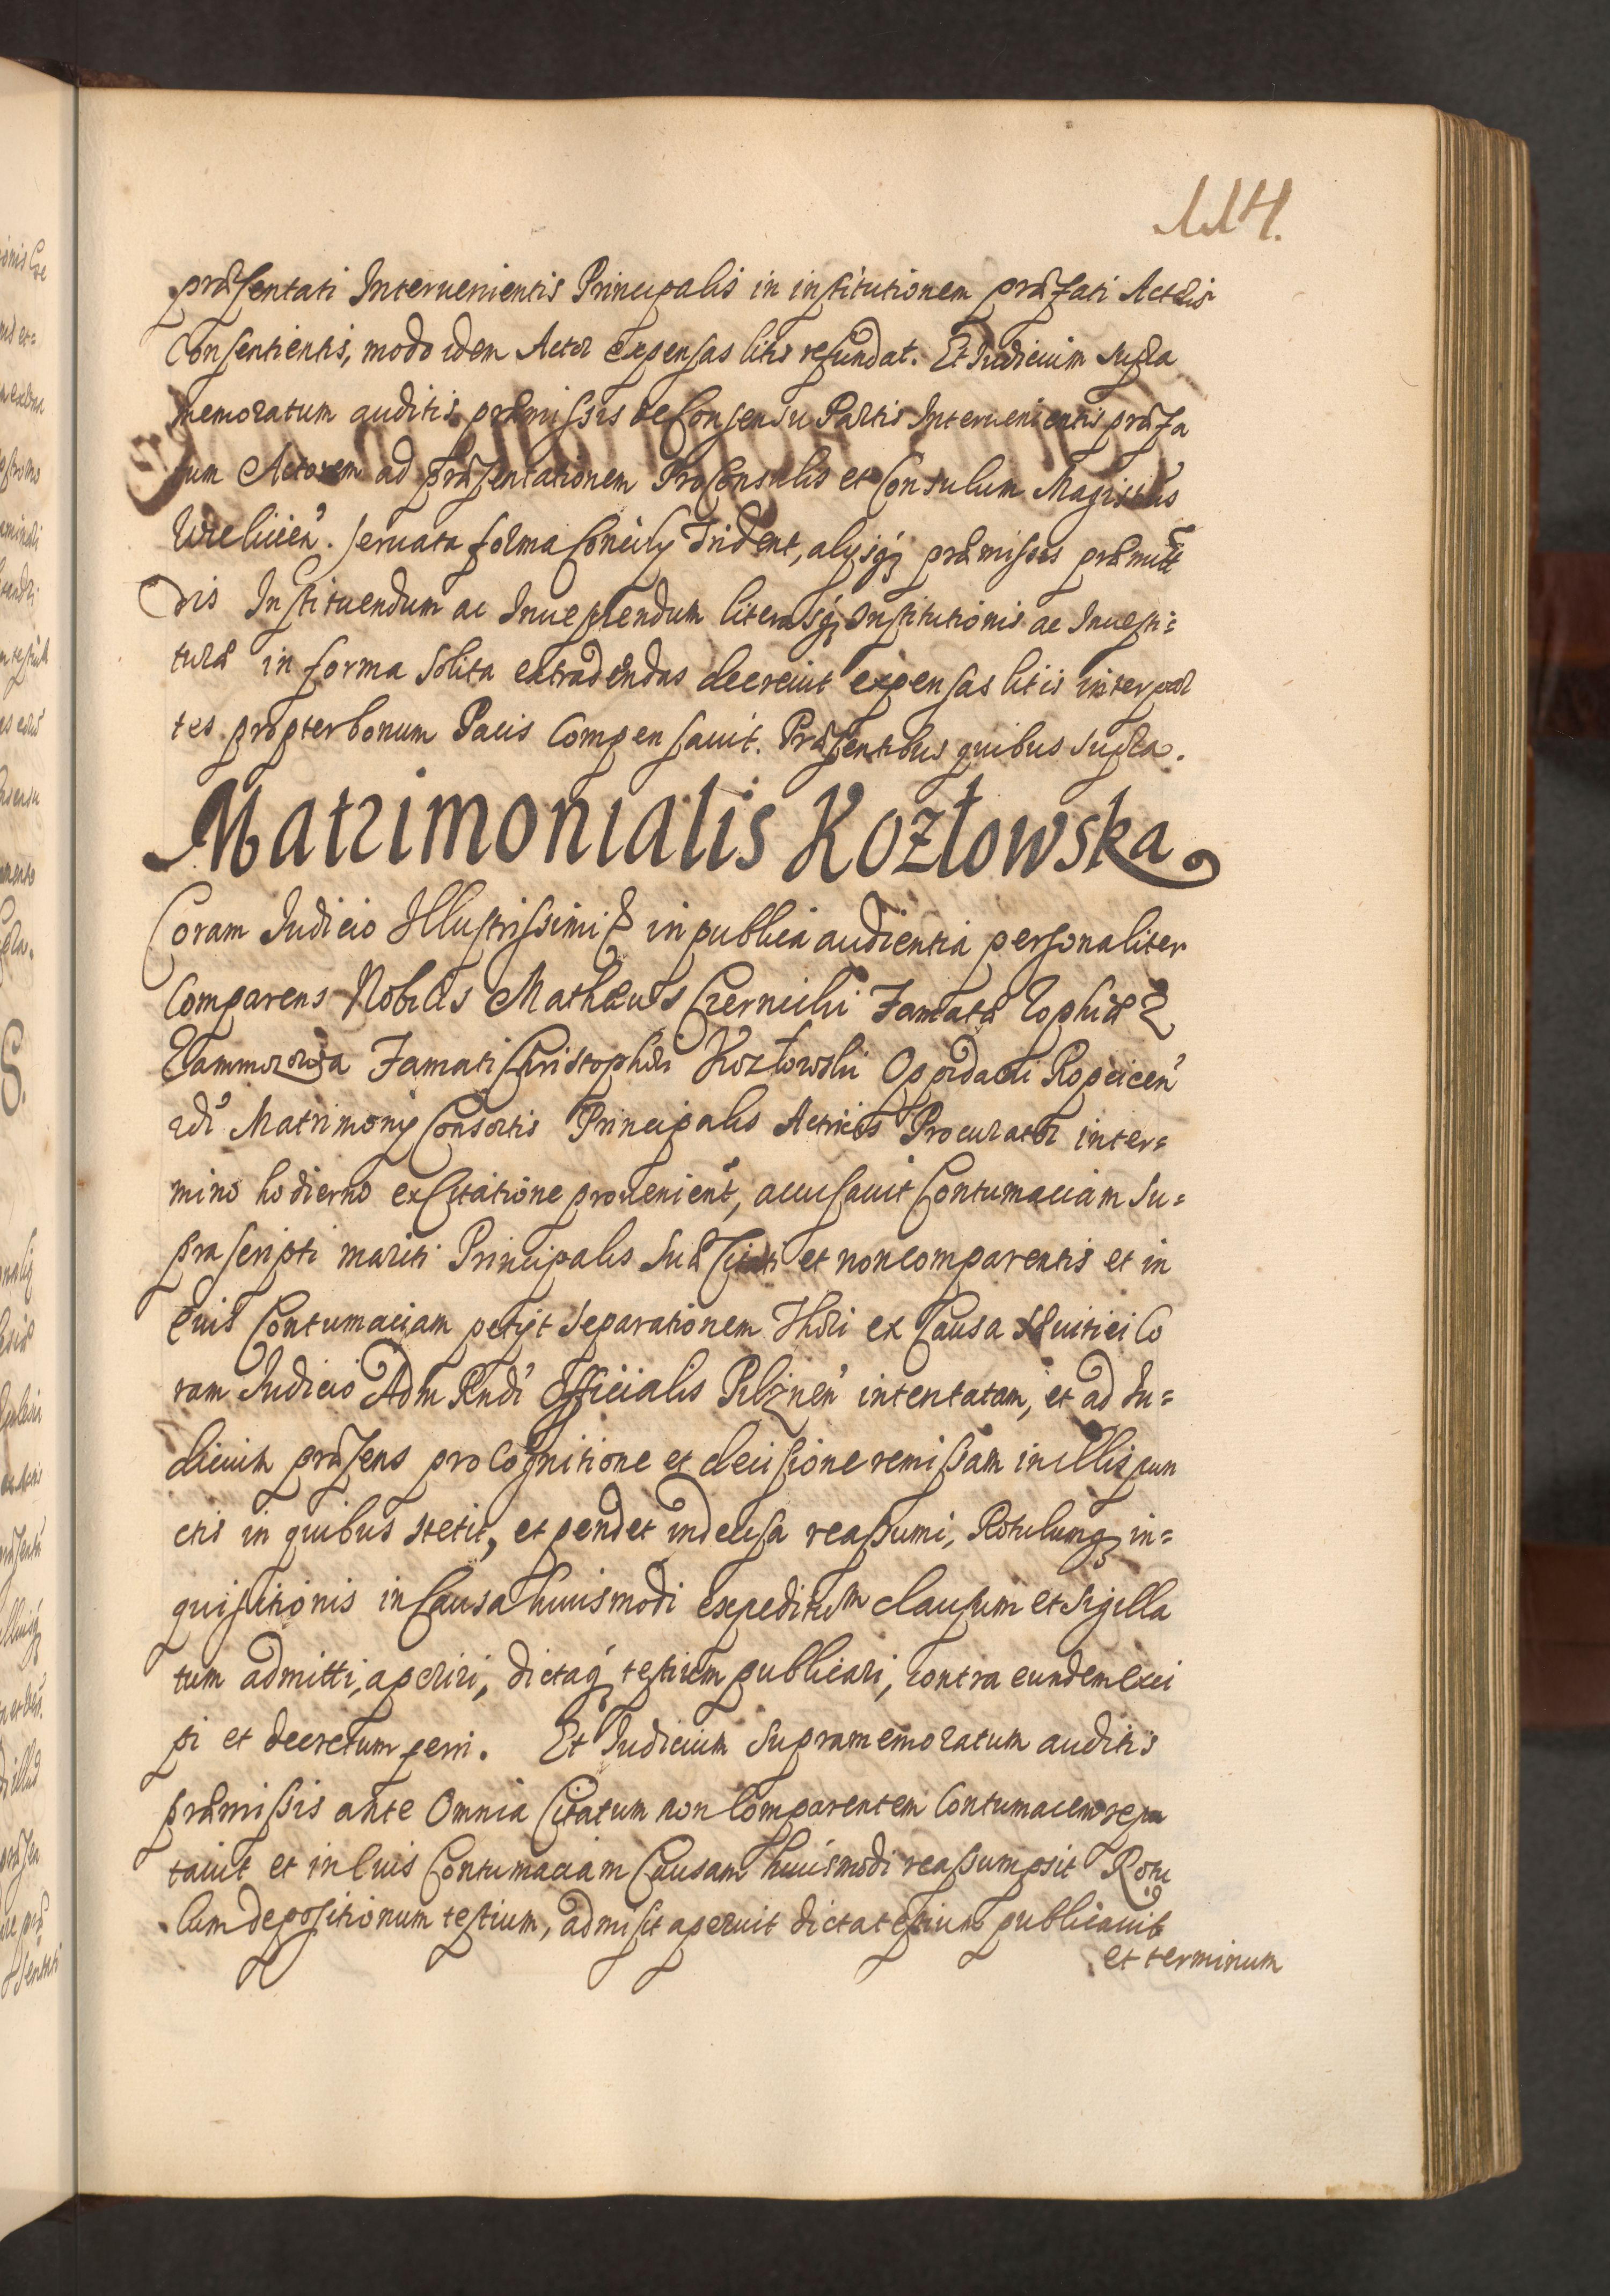 114.
præsentati Intervenientis Principalis in institutionem præfati Actoris
Consentientis, modo idem Actor expensas litis refundat. Et Judicium supra
memoratum auditis præmissis de Consensu Partis Intervenientis præfa
tum Actorem ad præsentationem ProConsulis et Consulum Magistratus
Wielicien̄. servata forma Concily Trident, alysq; præmissis præmitt
dis Instituendum ac Investiendum literasq; Institutionis ac Investi=
turæ in forma solita extradendas decrevit expensas litis inter par
tes propter bonum Pacis Compensavit. Præsentibus quibus supra.
Matrimonialis Kozłowska
Coram Judicio Illustrissimi & in publica audientia personaliter
Comparens Nobilis Mathæus Czernicki Famatæ Zophiæ
Famati Christophori Kozłowski Oppidani Ropcicen̄
Matrimony Consortis Principalis Actricis Procurator in ter=
mino hodierno ex Citatione provenient, accusavit Contumaciam su=
prascripti mariti Principalis suæ Citati et non comparentis et in
euis Contumaciam petyt separationem Thori ex Causa sævitiei Co
ram Judicio Adm Rndi Officialis Pilznen̄ intentatam, et ad Ju=
dicium præsens pro Cognitione et decisione remissam in illis pun
ctis in quibus stetit, et pendet indecisa reassumi, Rotulumq; in=
quisitionis in Causa huiusmodi expeditum clausum et sigilla
tum admitti, aperiri, dictaq; testium publicari, contra eundem exci
pi et decretum ferri. Et Judicium supramemoratum auditis
præmissis ante Omnia Citatum non Comparentem Contumacem repu
tavit et in euis Contumaciam Causam huiusmodi reassumpsit Rotu
lum depositionum testium, admisit aperuit dicta testium publicavit
et terminum